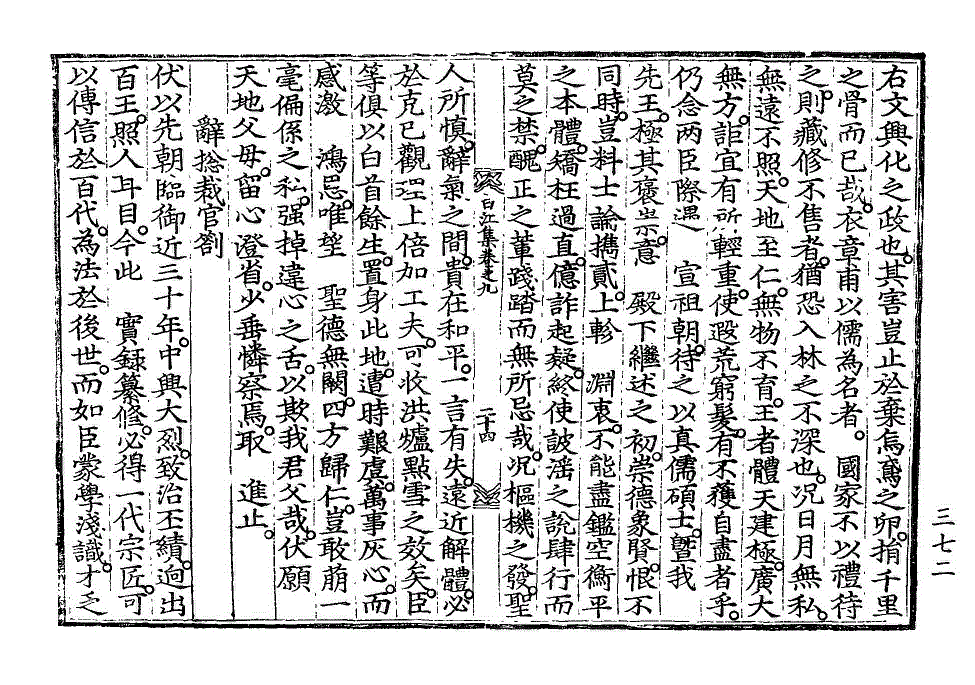 右文興化之政也其害豈止於棄鳥鳶之卵捐千里
之骨而已哉衣章甫以儒為名者國家不以禮待
之則藏修不售者猶恐入林之不深也况日月無私
無遠不照天地至仁無物不育王者體天建極廣大
無方詎宜有所輕重使遐荒窮髮有不獲自盡者乎
仍念两臣際遇 宣祖朝待之以真儒碩士曁我
先王極其褒崇意 殿下繼述之初崇德象賢恨不
同時豈料士論携貳上軫 淵衷不能盡鑑空衡平
之本體矯枉過直億詐起疑終使詖滛之說肆行而
莫之禁醜正之輩踐踏而無所忌哉况樞機之發聖
白江集卷之九
二十四
人所慎辭氣之間貴在和平一言有失遠近解體必
於克己觀理上倍加工夫可收洪爐點雪之效矣臣
等俱以白首餘生置身此地遭時艱虞萬事灰心而
感激 鴻恩唯望 聖德無闕四方歸仁豈敢萠一
毫偏係之私强掉違心之舌以欺我君父哉伏願
天地父母留心澄省少垂憐察焉取 進止
辭捴裁官劄
伏以先朝臨御近三十年中興大烈致治丕績逈出
百王照人耳目今此 實録纂修必得一代宗匠可
以傳信於百代為法於後世而如臣蒙學淺識才乏
三七二